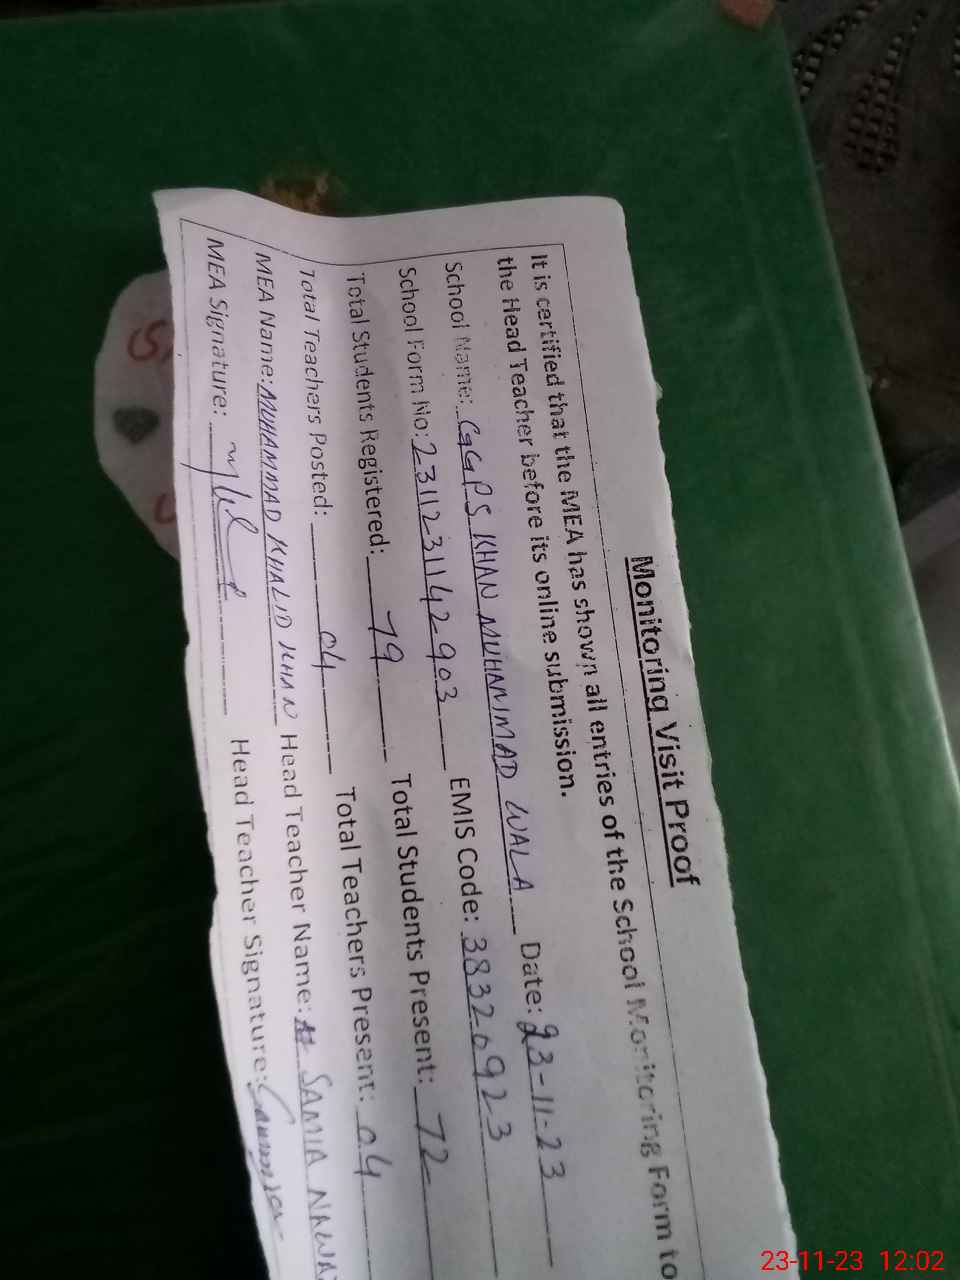 Monitoring Visit Proof
It is certified that the MEA has shown all entries of the School Monitoring Form to
the Head Teacher before its online submission.
School Name: GGPS KHAN MUHAMMAD WALA Date: 23-11-23
School Form No: 2311231142903 EMIS Code: 38320923
Total Students Registered: 79 Total Students Present: 72
Total Teachers Posted: 04 Total Teachers Present: 04
MEA Name: MUHAMMAD KHALID KHAN Head Teacher Name: SAMIA NAWAZ
MEA Signature: Head Teacher Signature:
23-11-23 12:02